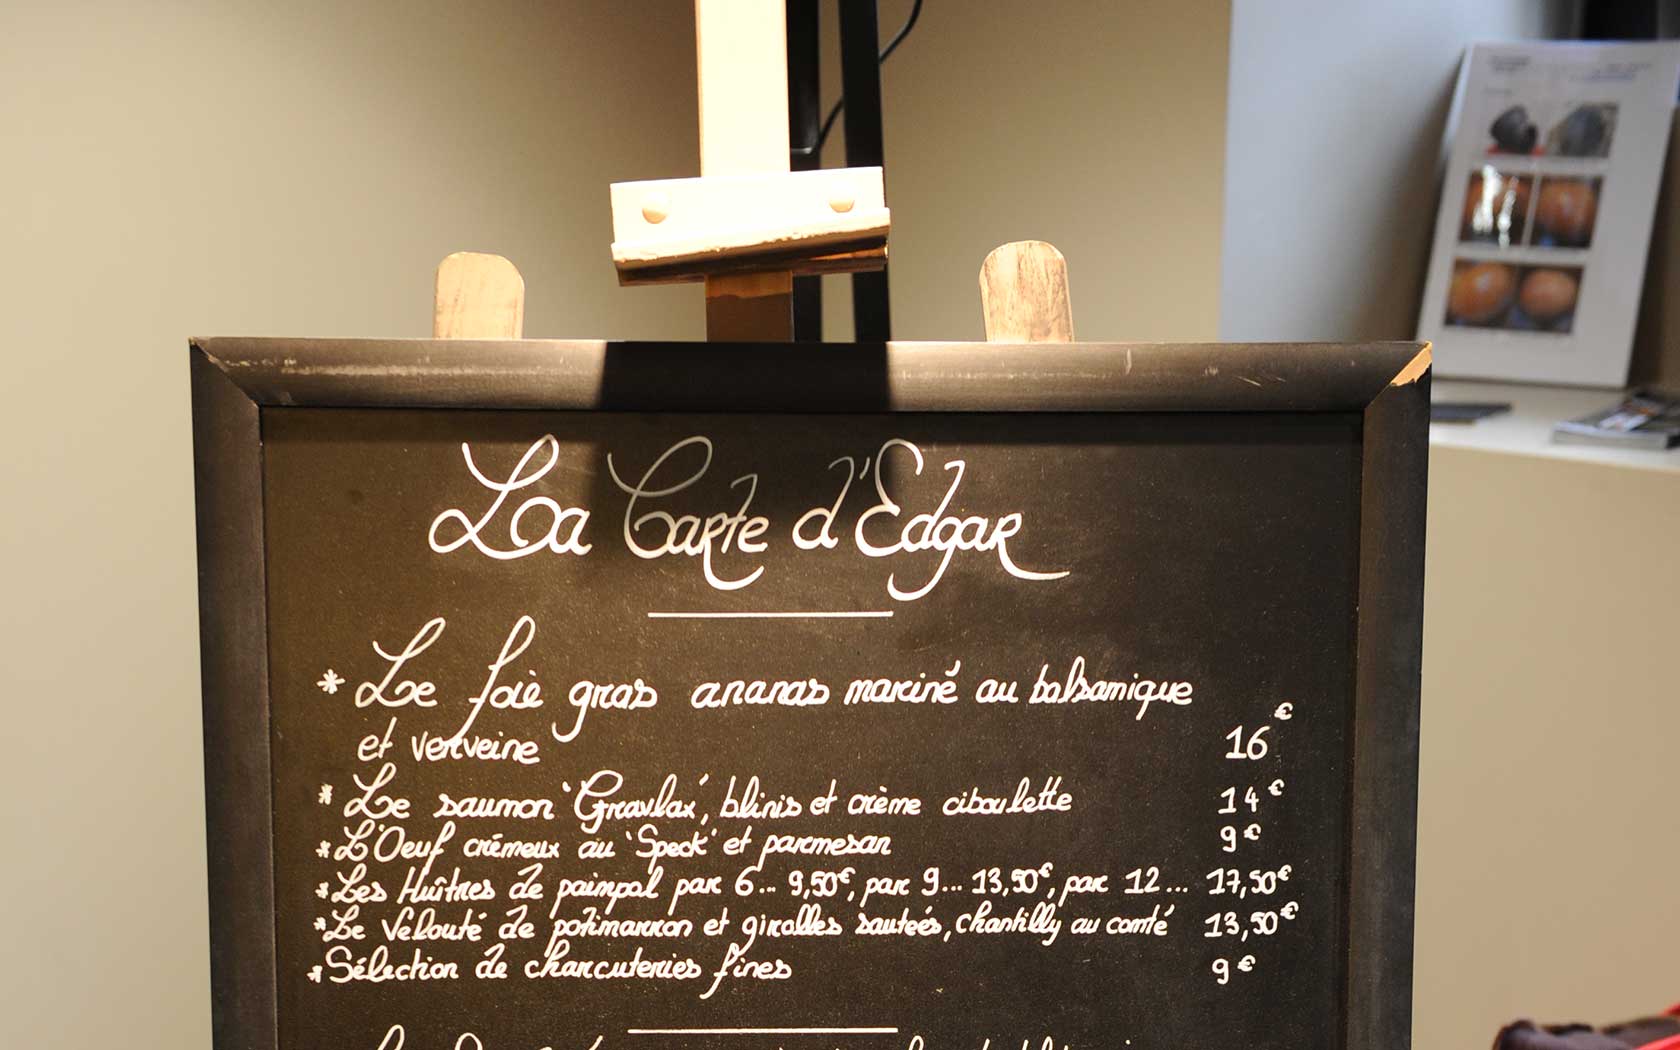 La Carte d'Edgar
* Le foie gras ananas mariné au balsamique
et verveine 16€
* Le saumon 'Gravlax', blinis et crème ciboulette 14€
* L'Oeuf crémeux au 'Speck' et parmesan 9€
* Les Huîtres de paimpol par 6... 9,50€, par 9... 13,50€, par 12... 17,50€
* Le Velouté de potimarron et girolles sautées, chantilly au comté 13,50€
* Sélection de charcuteries fines 9€